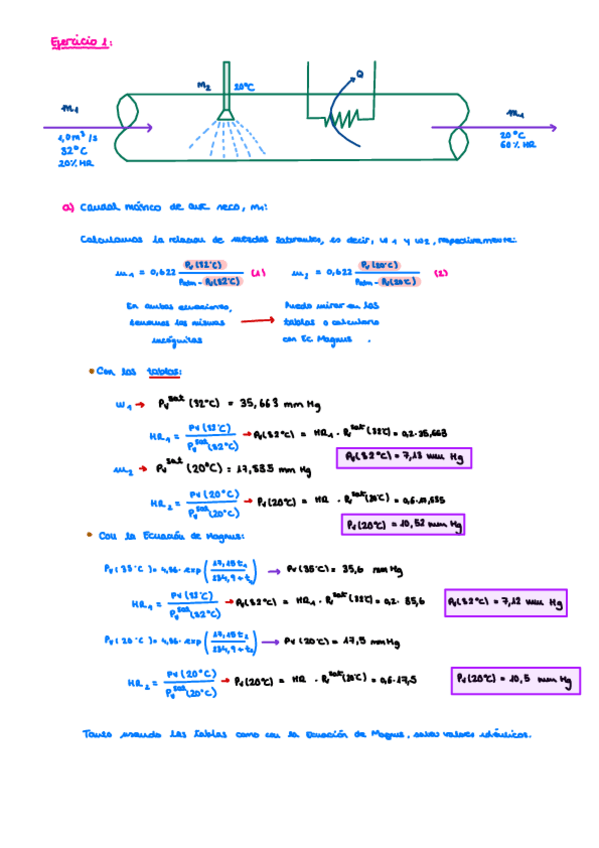 Ejercicio 1:
M2 20°C Q
m1
1,0 m³/s
32°C
20% HR
m1
20°C
60% HR
a) Caudal másico de aire seco, m1:
Calculamos la relación de mezclas saturantes, es decir, w1 y w2, respectivamente:
w1 = 0,622 Pv(32°C) / Patm - Pv(32°C) (1) w2 = 0,622 Pv(20°C) / Patm - Pv(20°C) (2)
En ambas ecuaciones, tenemos las mismas incógnitas → Puedo mirar en las tablas o calcularlo con Ec. Magnus.
• Con las tablas:
w1 → Pv^sat (32°C) = 35,663 mm Hg
HR1 = Pv(32°C) / Pv^sat(32°C) → Pv(32°C) = HR1 · Pv^sat(32°C) = 0,2 · 35,663
Pv(32°C) = 7,13 mm Hg
w2 → Pv^sat (20°C) = 17,535 mm Hg
HR2 = Pv(20°C) / Pv^sat(20°C) → Pv(20°C) = HR · Pv^sat(20°C) = 0,6 · 17,535
Pv(20°C) = 10,52 mm Hg
• Con la Ecuación de Magnus:
Pv(35°C) = 4,56 · exp → Pv(35°C) = 35,6 mm Hg
HR1 = Pv(32°C) / Pv^sat(32°C) → Pv(32°C) = HR1 · Pv^sat(32°C) = 0,2 · 35,6 Pv(32°C) = 7,12 mm Hg
Pv(20°C) = 4,56 · exp → Pv(20°C) = 17,5 mm Hg
HR2 = Pv(20°C) / Pv^sat(20°C) → Pv(20°C) = HR · Pv^sat(20°C) = 0,6 · 17,5 Pv(20°C) = 10,5 mm Hg
Tanto usando las tablas como con la Ecuación de Magnus, salen valores idénticos.